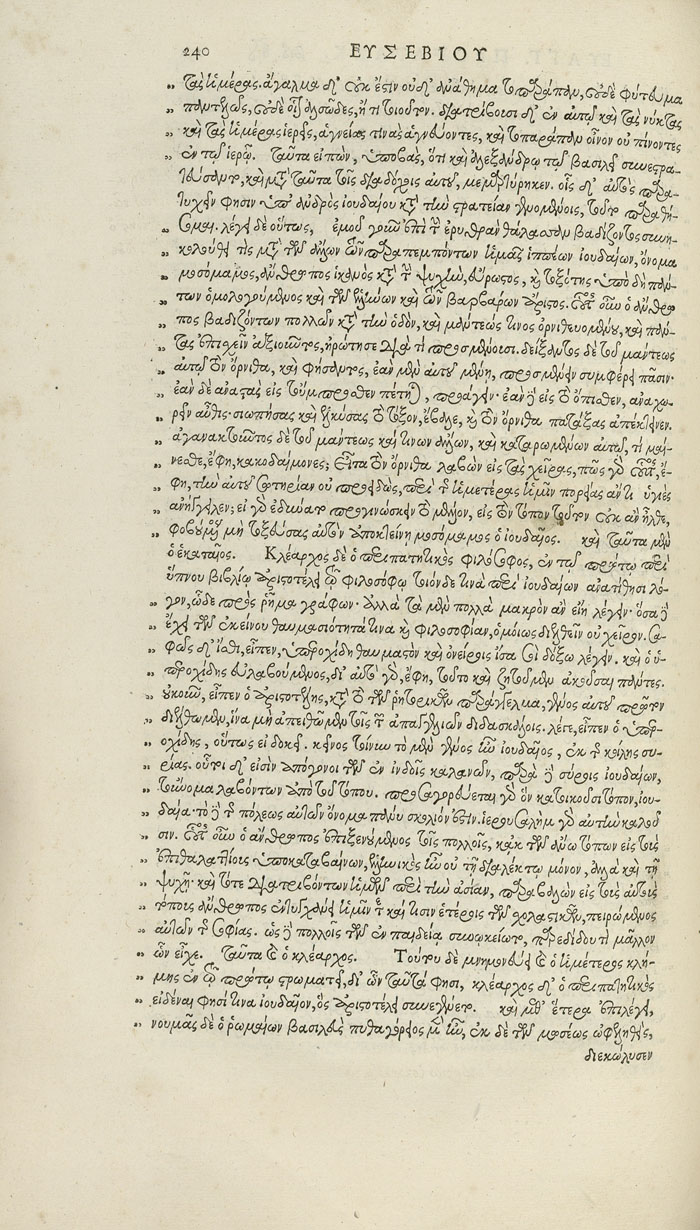 240 ΕΥΣΕΒΙΟΥ
„ τὰς ἡμέρας. ἄγαλμα δ' οὐκ ἔστιν οὐδ' ἀνάθημα τὸ παράπαν, οὐδὲ φύτευμα
„ παντελῶς, οὐδὲ οἷον ἀλσῶδες, ἤ τι τοιοῦτον. διατρίβουσι δ' ἐν αὐτῷ καὶ τὰς νύκτας
„ καὶ τὰς ἡμέρας ἱερεῖς, ἁγνείας τινὰς ἁγνεύοντες, καὶ τὸ παράπαν οἶνον οὐ πίνοντες
„ ἐν τῷ ἱερῷ. ταῦτα εἰπὼν, ὑποβὰς, ὅτι καὶ ἀλεξάνδρῳ τῷ βασιλεῖ συνεστρα-
τεύσαντο, καὶ μετὰ ταῦτα τοῖς διαδόχοις αὐτοῦ, μεμαρτύρηκεν. οἷς δ' αὐτὸς παρα-
τυχεῖν φησιν ὑπ' ἀνδρὸς ἰουδαίου κατὰ τὴν στρατείαν γενομένοις, ταῦτα παραθή-
„ σομαι. λέγει δὲ οὕτως, ἐμοῦ γοῦν ἐπὶ τὴν ἐρυθρὰν θάλασσαν βαδίζοντος συνη-
„ κολούθει τὶς μετὰ τῶν ἄλλων τῶν παραπεμπόντων ἡμᾶς ἱππέων ἰουδαίων, ὄνομα
„ μοσόμαμος, ἄνθρωπος ἱκανὸς κατὰ τὴν ψυχὴν, εὔρωστος, καὶ τοξότης ὑπὸ δὴ πάν-
„ των ὁμολογούμενος καὶ τῶν ἑλλήνων καὶ τῶν βαρβάρων ἄριστος. οὗτος οὖν ὁ ἄνθρω
„ πος βαδιζόντων πολλῶν κατὰ τὴν ὁδὸν, καὶ μάντεώς τινος ὀρνιθευομένου, καὶ πάν-
„ τας ἐπισχεῖν ἀξιοῦντος, ἠρώτησε διὰ τί προσμένουσι. δείξαντος δὲ τοῦ μάντεως
„ αὐτῷ τὸν ὄρνιθα, καὶ φήσαντος, ἐὰν μὲν αὐτοῦ μένῃ, προσμένειν συμφέρει πᾶσιν·
„ ἐὰν δὲ ἀναστὰς εἰς τοὔμπροσθεν πέτηται, προάγειν· ἐὰν δὲ εἰς τὸ ὄπιθεν, αναχω-
„ ρεῖν αὖθις· σιωπήσας καὶ ἑλκύσας τὸ τόξον, ἔβαλε, καὶ τὸν ὄρνιθα πατάξας ἀπέκτεινεν.
„ ἀγανακτοῦντος δὲ τοῦ μάντεως καί τινων ἄλλων, καὶ καταρωμένων αὐτῷ, τί μαί-
„ νεσθε, ἔφη, κακοδαίμονες; εἶτα τὸν ὄρνιθα λαβὼν εἰς τὰς χεῖρας, πῶς γὰρ οὗτος, ἔ-
„ φη, τὴν αὐτοῦ σωτηρίαν οὐ προειδὼς, περὶ τῆς ἡμετέρας ἡμῖν πορείας ἄν τι ὑγιὲς
„ ἀνήγγειλεν; εἰ γὰρ ἐδύνατο προγινώσκειν τὸ μέλλον, εἰς τὸν τόπον τοῦτον οὐκ ἂν ἦλθε,
„ φοβούμενος μὴ τοξεύσας αὐτὸν ἀποκτείνῃ μοσόμαμος ὁ ἰουδαῖος. καὶ ταῦτα μὲν
ὁ ἑκαταῖος. Κλέαρχος δὲ ὁ περιπατητικὸς φιλόσοφος, ἐν τῷ πρώτῳ περὶ
ὕπνου βιβλίῳ ἀριστοτέλει τῷ φιλοσόφῳ τοιόνδε τινὰ περὶ ἰουδαίων ἀνατίθησι λό-
„ γον, ὧδε πρὸς ῥῆμα γράφων· ἀλλὰ τὰ μὲν πολλὰ μακρὸν ἂν εἴη λέγειν· ὅσα δὲ
„ ἔχει τῶν ἐκείνου θαυμασιότητά τινα καὶ φιλοσοφίαν, ὁμοίως διελθεῖν οὐ χεῖρον. σα-
„ φῶς δ' ἴσθι, εἶπεν, ὑπεροχίδη θαυμαστὸν καὶ ὀνείροις ἴσα σοι δόξω λέγειν. καὶ ὁ ὑ-
„ περοχίδης εὐλαβούμενος, δι' αὐτὸ γὰρ, ἔφη, τοῦτο καὶ ζητοῦμεν ἀκοῦσαι πάντες.
„ οὐκοῦν, εἶπεν ὁ ἀριστοτέλης, κατὰ τὸ τῶν ῥητορικῶν παράγγελμα, γένος αὐτοῦ πρῶτον
„ διέλθωμεν, ἵνα μὴ ἀπειθῶμεν τοῖς τῶν ἀπαγγελιῶν διδασκάλοις. λέγε, εἶπεν ὁ ὑπερ-
„ οχίδης, οὕτως εἰ δοκεῖ. κἀκεῖνος τοίνυν τὸ μὲν γένος ἦν ἰουδαῖος, ἐκ τῆς κοίλης συ-
„ ρίας. οὗτοι δ' εἰσὶν ἀπόγονοι τῶν ἐν ἰνδοῖς καλανῶν, παρὰ δὲ σύροις ἰουδαῖοι,
„ τοὔνομα λαβόντων ἀπὸ τοῦ τόπου. προσαγορεύεται γὰρ ὃν κατοικοῦσι τόπον, ἰου-
„ δαία· τὸ δὲ τῆς πόλεως αὐτῶν ὄνομα πάνυ σκολιόν ἐστιν. ἱερουσαλὴμ γὰρ αὐτὴν καλοῦ
„ σιν. οὗτος οὖν ὁ ἄνθρωπος ἐπιξενούμενος τοῖς πολλοῖς, κἀκ τῶν ἄνω τόπων εἰς τοὺς
„ ἐπιθαλαττίους ὑποκαταβαίνων, ἑλληνικὸς ἦν οὐ τῇ διαλέκτῳ μόνον, ἀλλὰ καὶ τῇ
„ ψυχῇ· καὶ τότε διατριβόντων ἡμῶν περὶ τὴν ἀσίαν, παραβαλὼν εἰς τοὺς αὐτοὺς
„ τόπους ἄνθρωπος ἐντυγχάνει ἡμῖν τε καί τισιν ἑτέροις τῶν σχολαστικῶν, πειρώμενος
„ αὐτῶν τῆς σοφίας. ὡς δὲ πολλοῖς τῶν ἐν παιδείᾳ συνῳκείωτο, παρεδίδου τι μᾶλλον
„ ὧν εἶχε. ταῦτα καὶ ὁ κλέαρχος. Τούτου δὲ μνημονεύει καὶ ὁ ἡμέτερος κλή-
„ μης ἐν τῷ πρώτῳ στρωματεῖ, δι' ὧν ταῦτά φησι, κλέαρχος δ' ὁ περιπατητικὸς
„ εἰδέναι φησί τινα ἰουδαῖον, ὃς ἀριστοτέλει συνεγένετο. καὶ μεθ' ἕτερα ἐπιλέγει,
„ νουμᾶς δὲ ὁ ῥωμαίων βασιλεὺς πυθαγόρειος μὲν ἦν, ἐκ δὲ τῶν μωσέως ὠφεληθεὶς,
διεκώλυσεν